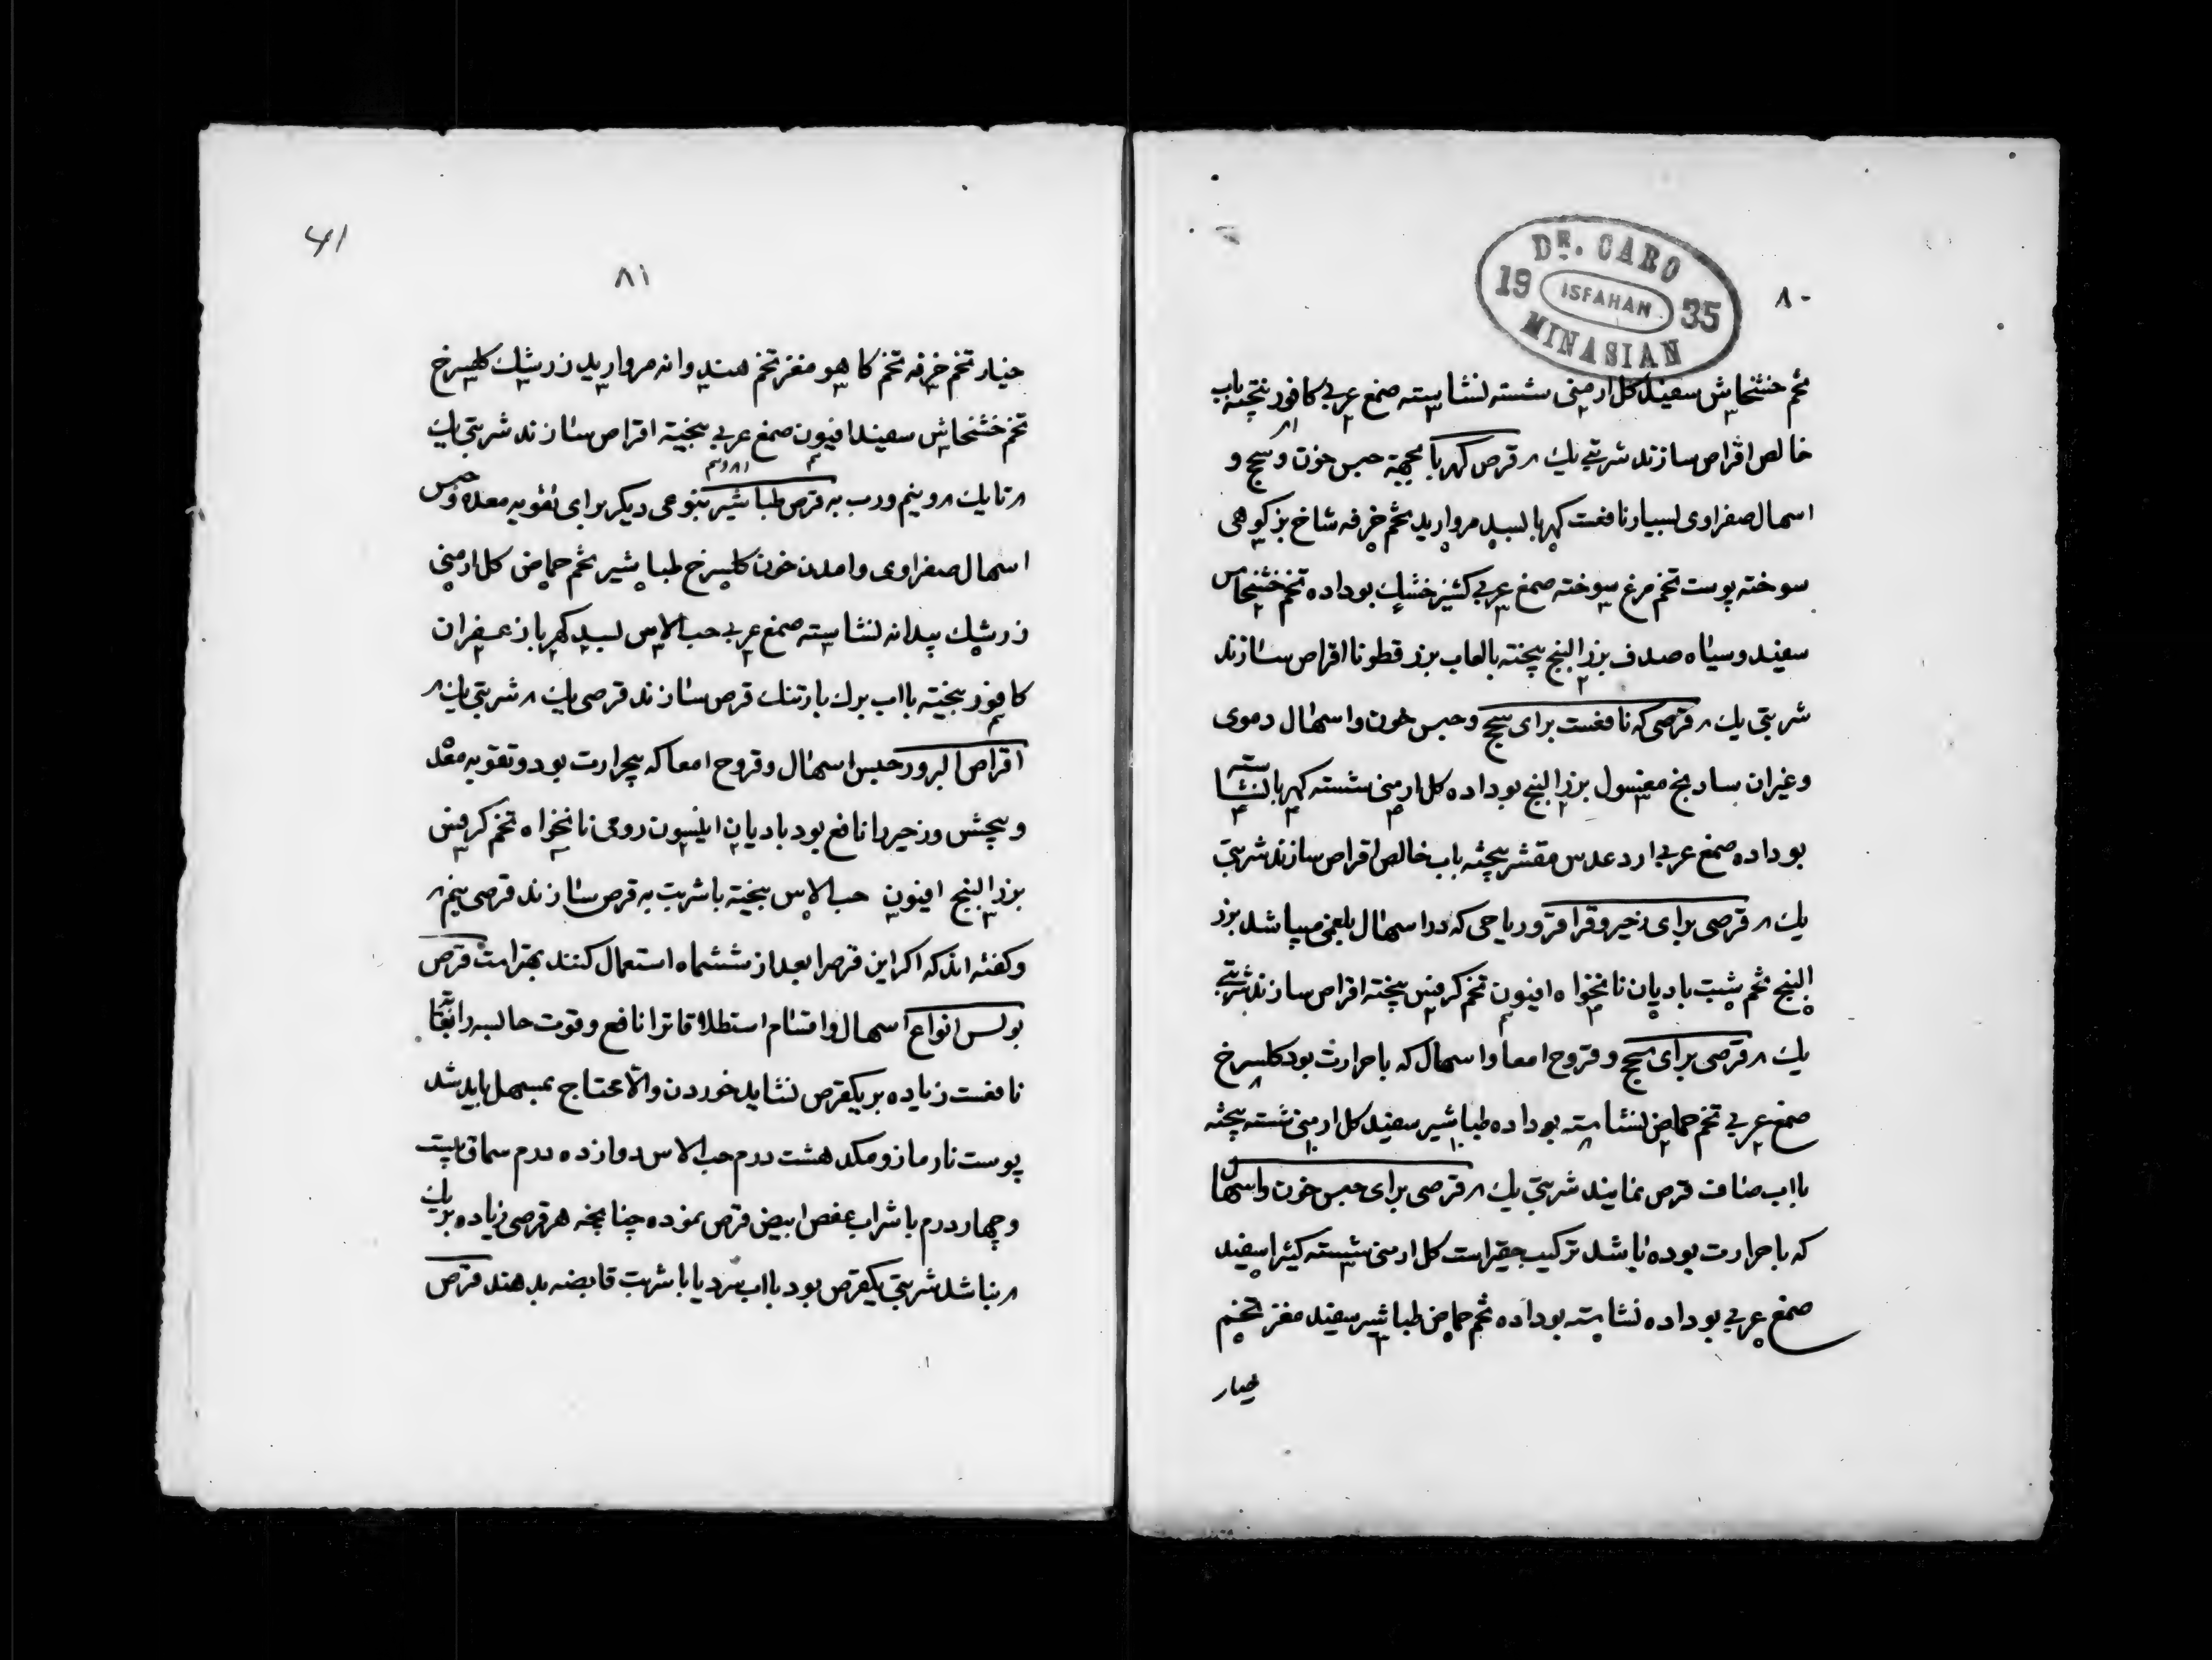 ۸۰
DR. CARO
19 ISFAHAN 35
MINASIAN
تخم خشخاش سفید کل ارمنی شسته نشاسته صمغ عربی کافور بیخته باب
خالص اقراص سازند شربتی یک م قرص کهربا بجهة حبس خون و سحج و
اسهال صفراوی بسیار نافعست کهربا بسد مروارید تخم خرفه شاخ بز کوهی
سوخته پوست تخم مرغ سوخته صمغ عربی کشنیز خشک بوداده تخم خشخاش
سفید و سیاه صدف بزر البنج بیخته بالعاب بزر قطونا اقراص سازند
شربتی یک م قرصی که نافعست برای سحج و حبس خون و اسهال دموی
و غیران سادنج مغسول بزر البنج بوداده کل ارمنی شسته کهربا نشاسته
بوداده صمغ عربی ارد عدس مقشر بیخته باب خالص اقراص سازند شربتی
یک م قرصی برای زحیر و قراقر و ریاحی که در اسهال بلغمی میباشد بزر
البنج تخم شبت بادیان نانخواه افیون تخم کرفس بیخته اقراص سازند شربتی
یک م قرصی برای سحج و قروح امعا و اسهال که با حرارت بود کلسرخ
صمغ عربی تخم حماض نشاسته بوداده طباشیر سفید کل ارمنی شسته بیخته
بااب صاف قرص نمایند شربتی یک م قرصی برای حبس خون و اسهال
که با حرارت بوده باشد ترکیب حقیر است کل ارمنی شسته کتیرا سفید
صمغ عربی بوداده نشاسته بوداده تخم حماض طباشیر سفید مغز تخم
خیار
41
۸۱
خیار تخم خرفه تخم کاهو مغز تخم هندوانه مروارید زرشک کلسرخ
تخم خشخاش سفید افیون صمغ عربی بیخته اقراص سازند شربتی یک
م تا یک م و نیم و رب به قرص طباشیر بنوعی دیکر برای تقویه معده و حبس
اسهال صفراوی و امدن خون کلسرخ طباشیر تخم حماض کل ارمنی
زرشک بیدانه نشاسته صمغ عربی حب الاس بسد کهربا زعفران
کافور بیخته بااب برک بارتنک قرص سازند قرصی یک م شربتی یک م
اقراص البزور حبس اسهال و قروح امعا که بیحرارت بود و تقویه مقعد
و پیچش و زحیر را نافع بود بادیان انیسون رومی نانخواه تخم کرفس
بزر البنج افیون حب الاس بیخته باشربت به قرص سازند قرصی نیم م
و کفته اند که اکر این قرصرا بعد از ششماه استعمال کنند بهتر است قرص
بولس انواع اسهال و اقسام استطلاقاترا نافع و قوت حابسه را بغایة
نافعست زیاده بر یکقرص نشاید خوردن و الا محتاج بمسهل باید شد
پوست نار مازو مکد هشت درم حب الاس دوازده درم سماق بیست
و چهار درم با شراب عفص ابیض قرص نموده چنانچه هر قرصی زیاده بر یک
م نباشد شربتی یکقرص بود بااب سرد یا باشربت قابضه بدهند قرص